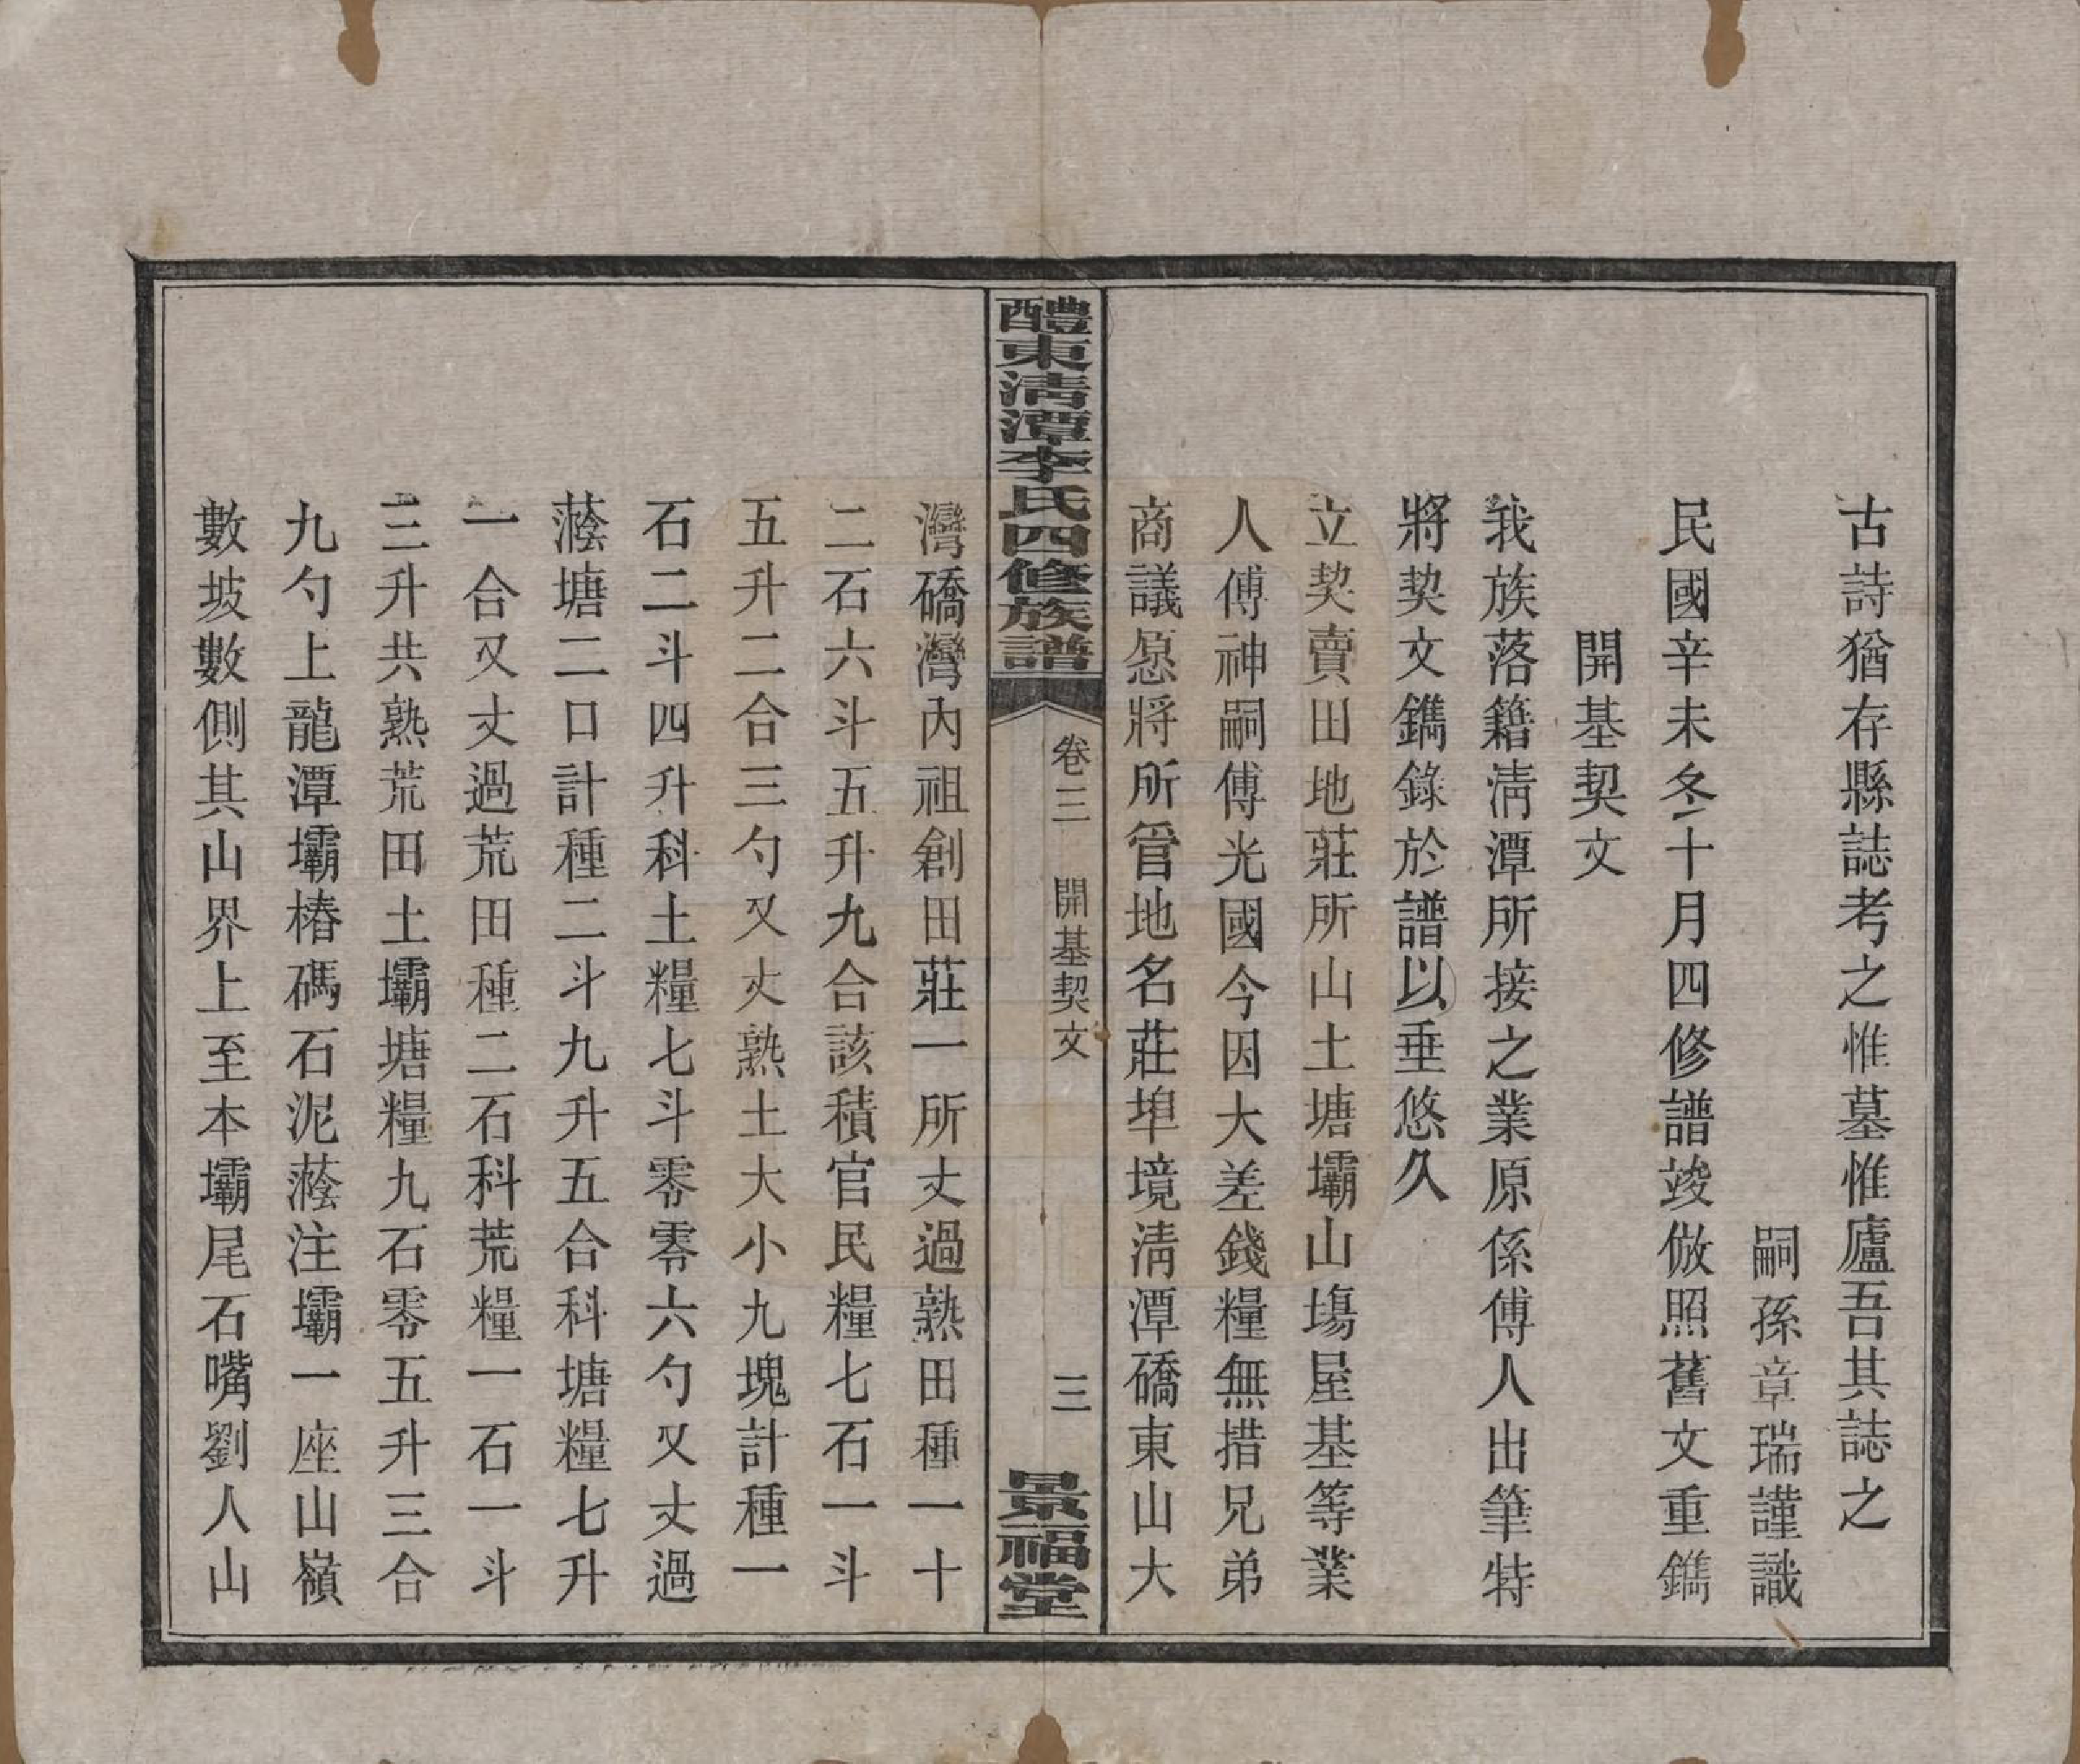 古詩猶存縣誌考之惟墓惟廬吾其誌之
嗣孫章瑞謹識
民國辛未冬十月四修譜竣倣照舊文重鐫
開基契文
我族落籍淸潭所接之業原係傅人出筆特
將契文鐫錄於譜以垂悠久
立契賣田地莊所山土塘壩山塲屋基等業
人傅神嗣傅光國今因大差錢糧無措兄弟
商議愿將所管地名莊埠境淸潭礄東山大
醴東淸潭李氏四修族譜
卷三 開基契文
三
景福堂
灣礄灣內祖創田莊一所丈過熟田種一十
二石六斗五升九合該積官民糧七石一斗
五升二合三勺又丈熟土大小九塊計種一
石二斗四升科土糧七斗零零六勺又丈過
蔭塘二口計種二斗九升五合科塘糧七升
一合又丈過荒田種二石科荒糧一石一斗
三升共熟荒田土壩塘糧九石零五升三合
九勺上龍潭壩樁碼石泥蔭注壩一座山嶺
數坡數側其山界上至本壩尾石嘴劉人山